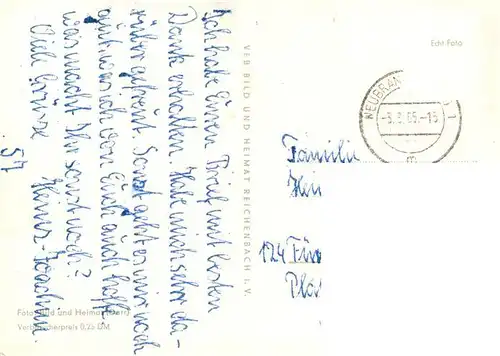 Ich habe Euren Brief mit besten
Dank erhalten. Habe mich sehr da-
rüber gefreut. Sonst geht es mir noch
gut was ich von Euch auch hoffe.
was macht Ihr sonst noch?
Viele Grüsse Heinz-Joachim.
57
VEB BILD UND HEIMAT REICHENBACH I. V.
Echt Foto
NEUBRAN
-3.3.65.-15
m
Familie
124 Für
Foto: Bild und Heimat (Darr)
Verbraucherpreis 0,25 DM